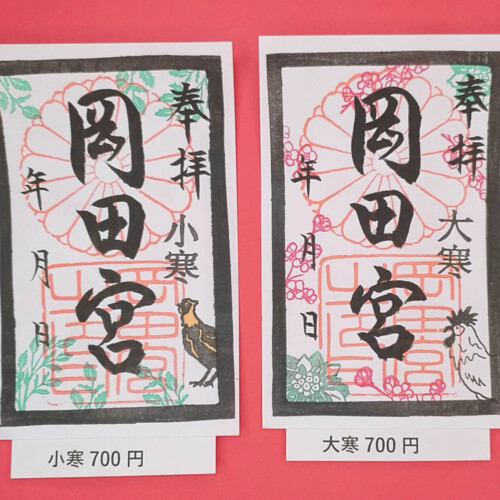 奉拝
小寒
岡田宮
年 月 日
小寒 700 円
奉拝
大寒
岡田宮
年 月 日
大寒 700 円